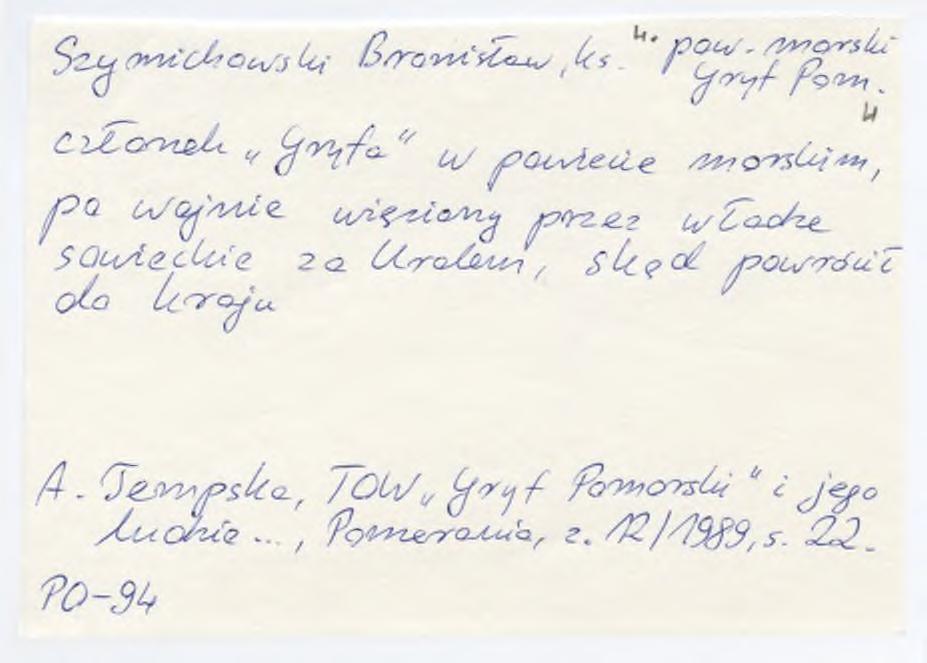 Szymichowski Bronisław, ks. pow. morski
Gryf Pom.
członek „Gryfa" w powiecie morskim,
po wojnie więziony przez władze
sowieckie za Uralem, skąd powrócił
do kraju
A. Tempska, TOW „Gryf Pomorski" i jego
ludzie..., Pomerania, z. 12/1989, s. 22.
PO-94